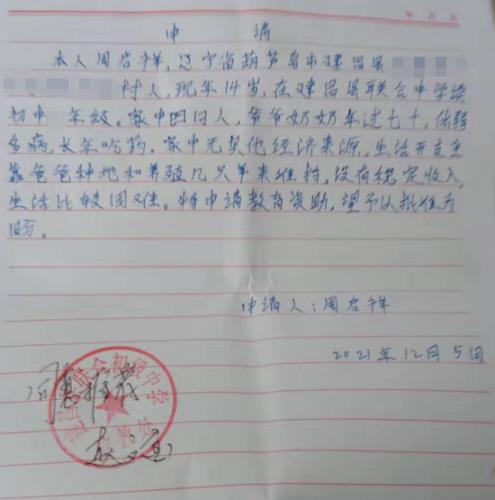 年 月 日
申 请
本人周启祥,辽宁省葫芦岛市建昌县
村人,现年14岁,在建昌县联合中学读
初中 年级。家中四口人,爷爷奶奶年过七十,体弱
多病,长年吃药,家中无其他经济来源,生活开支主
靠爸爸种地和养殖几只羊来维持,没有稳定收入,
生活比较困难。特申请教育资助,望予以批准为
盼。
申请人:周启祥
2021年12月5日